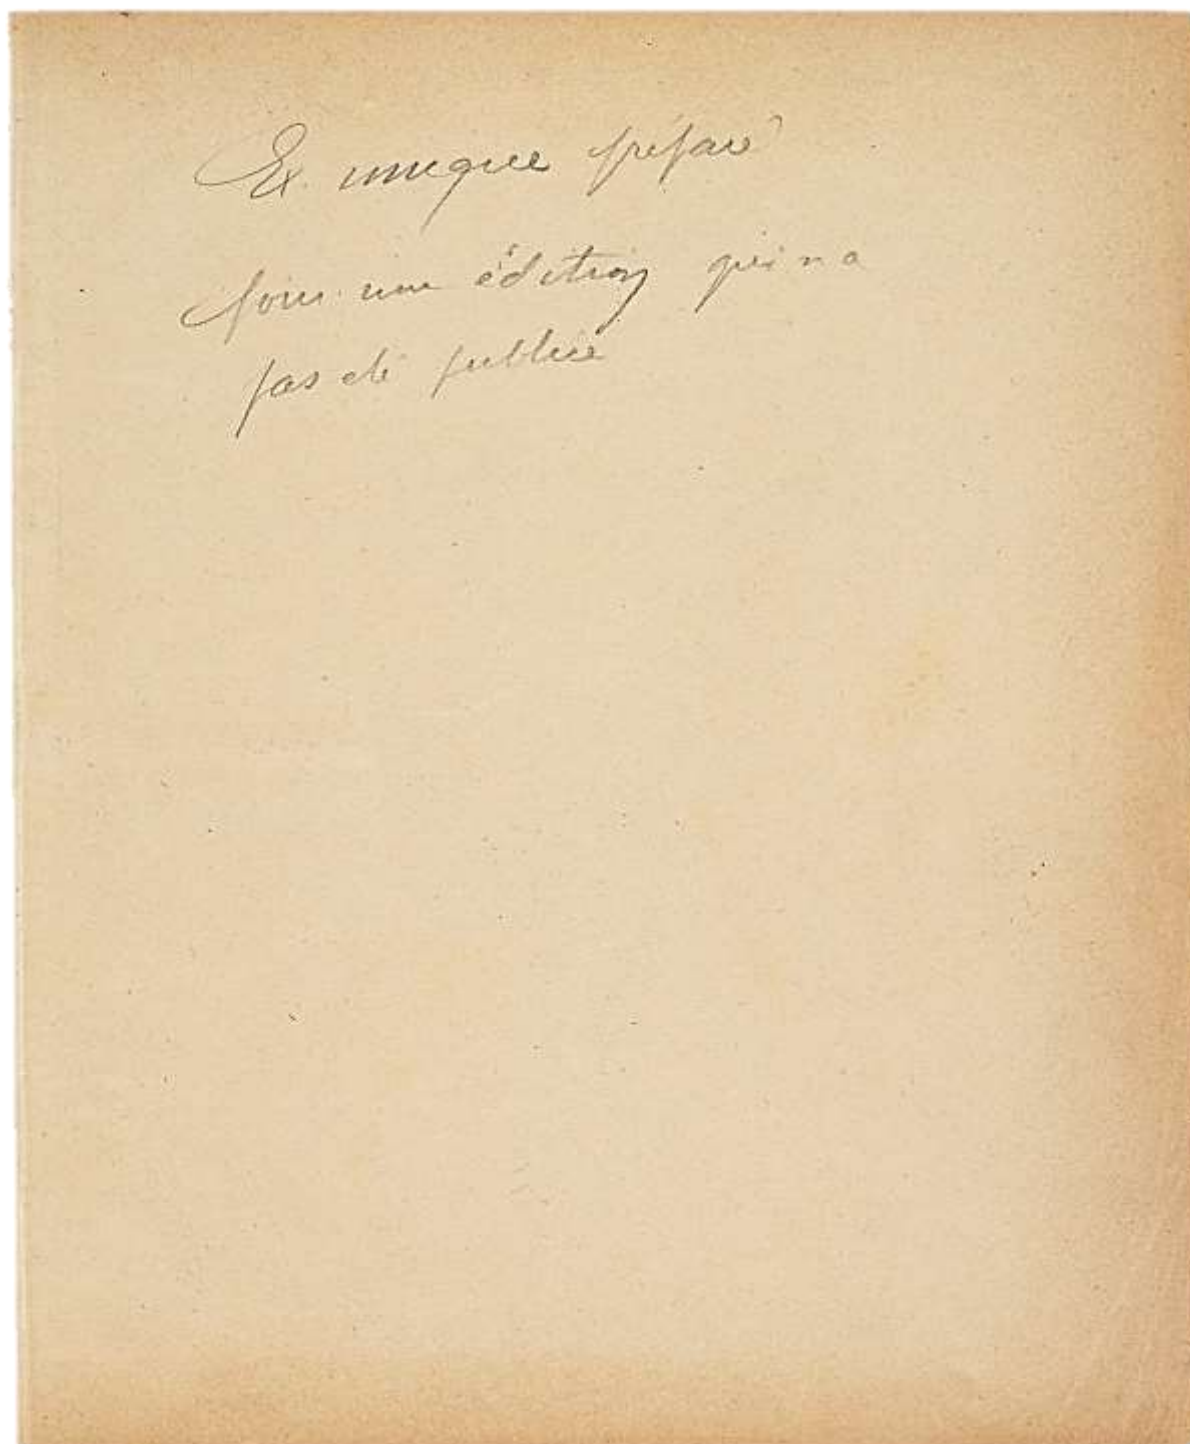 Ex. unique préparé
pour une édition qui n a
pas été publiée